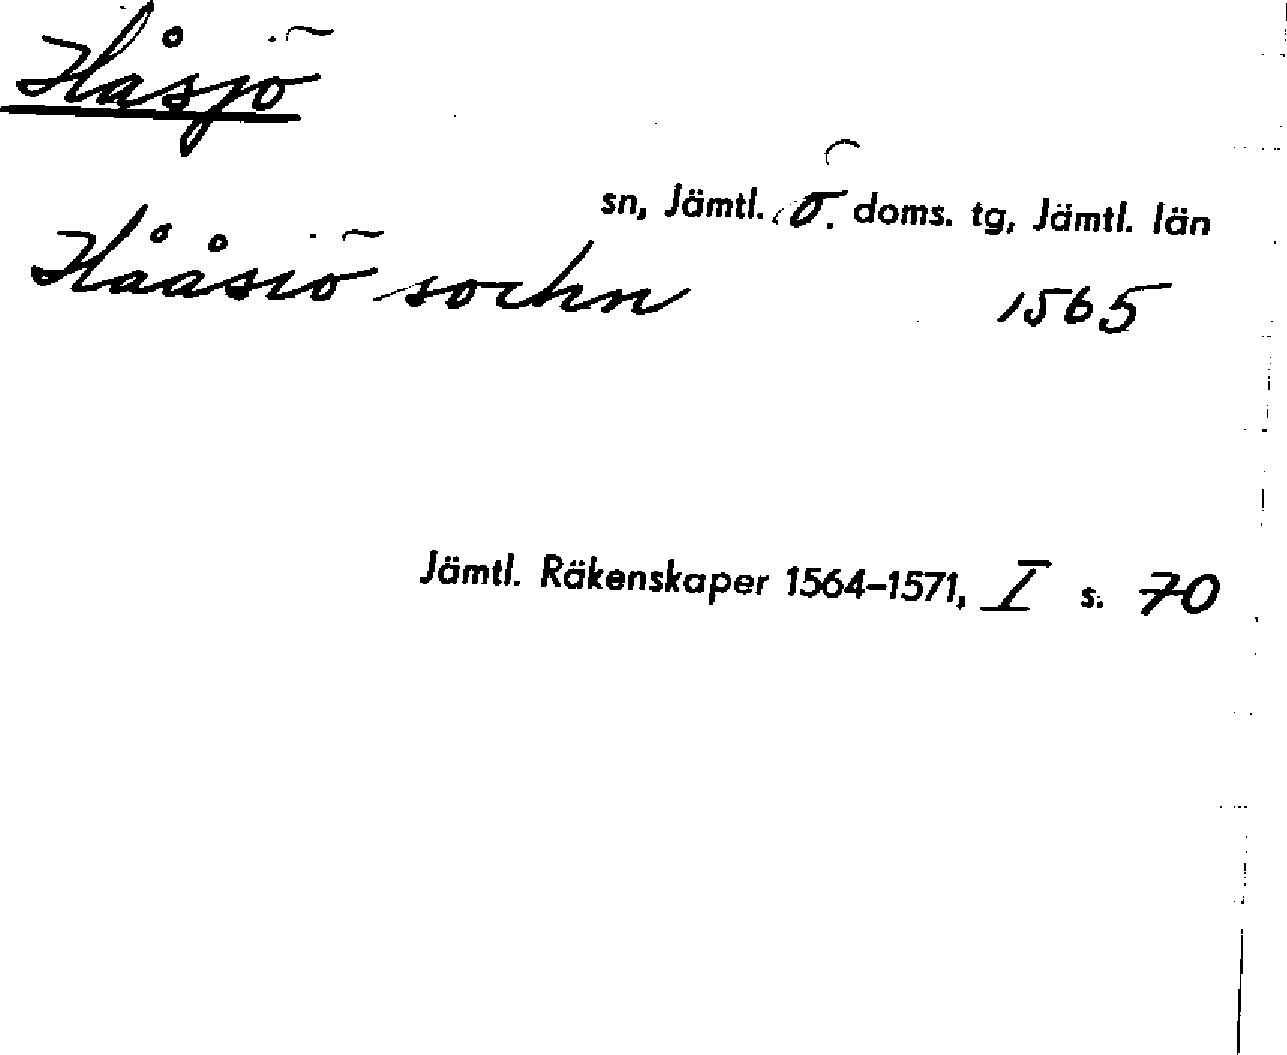 Håsjö
sn, Jämtl. ö. doms. tg, Jämtl. län
Hååsiö sochn 1565
Jämtl. Räkenskaper 1564–1571, I s. 70